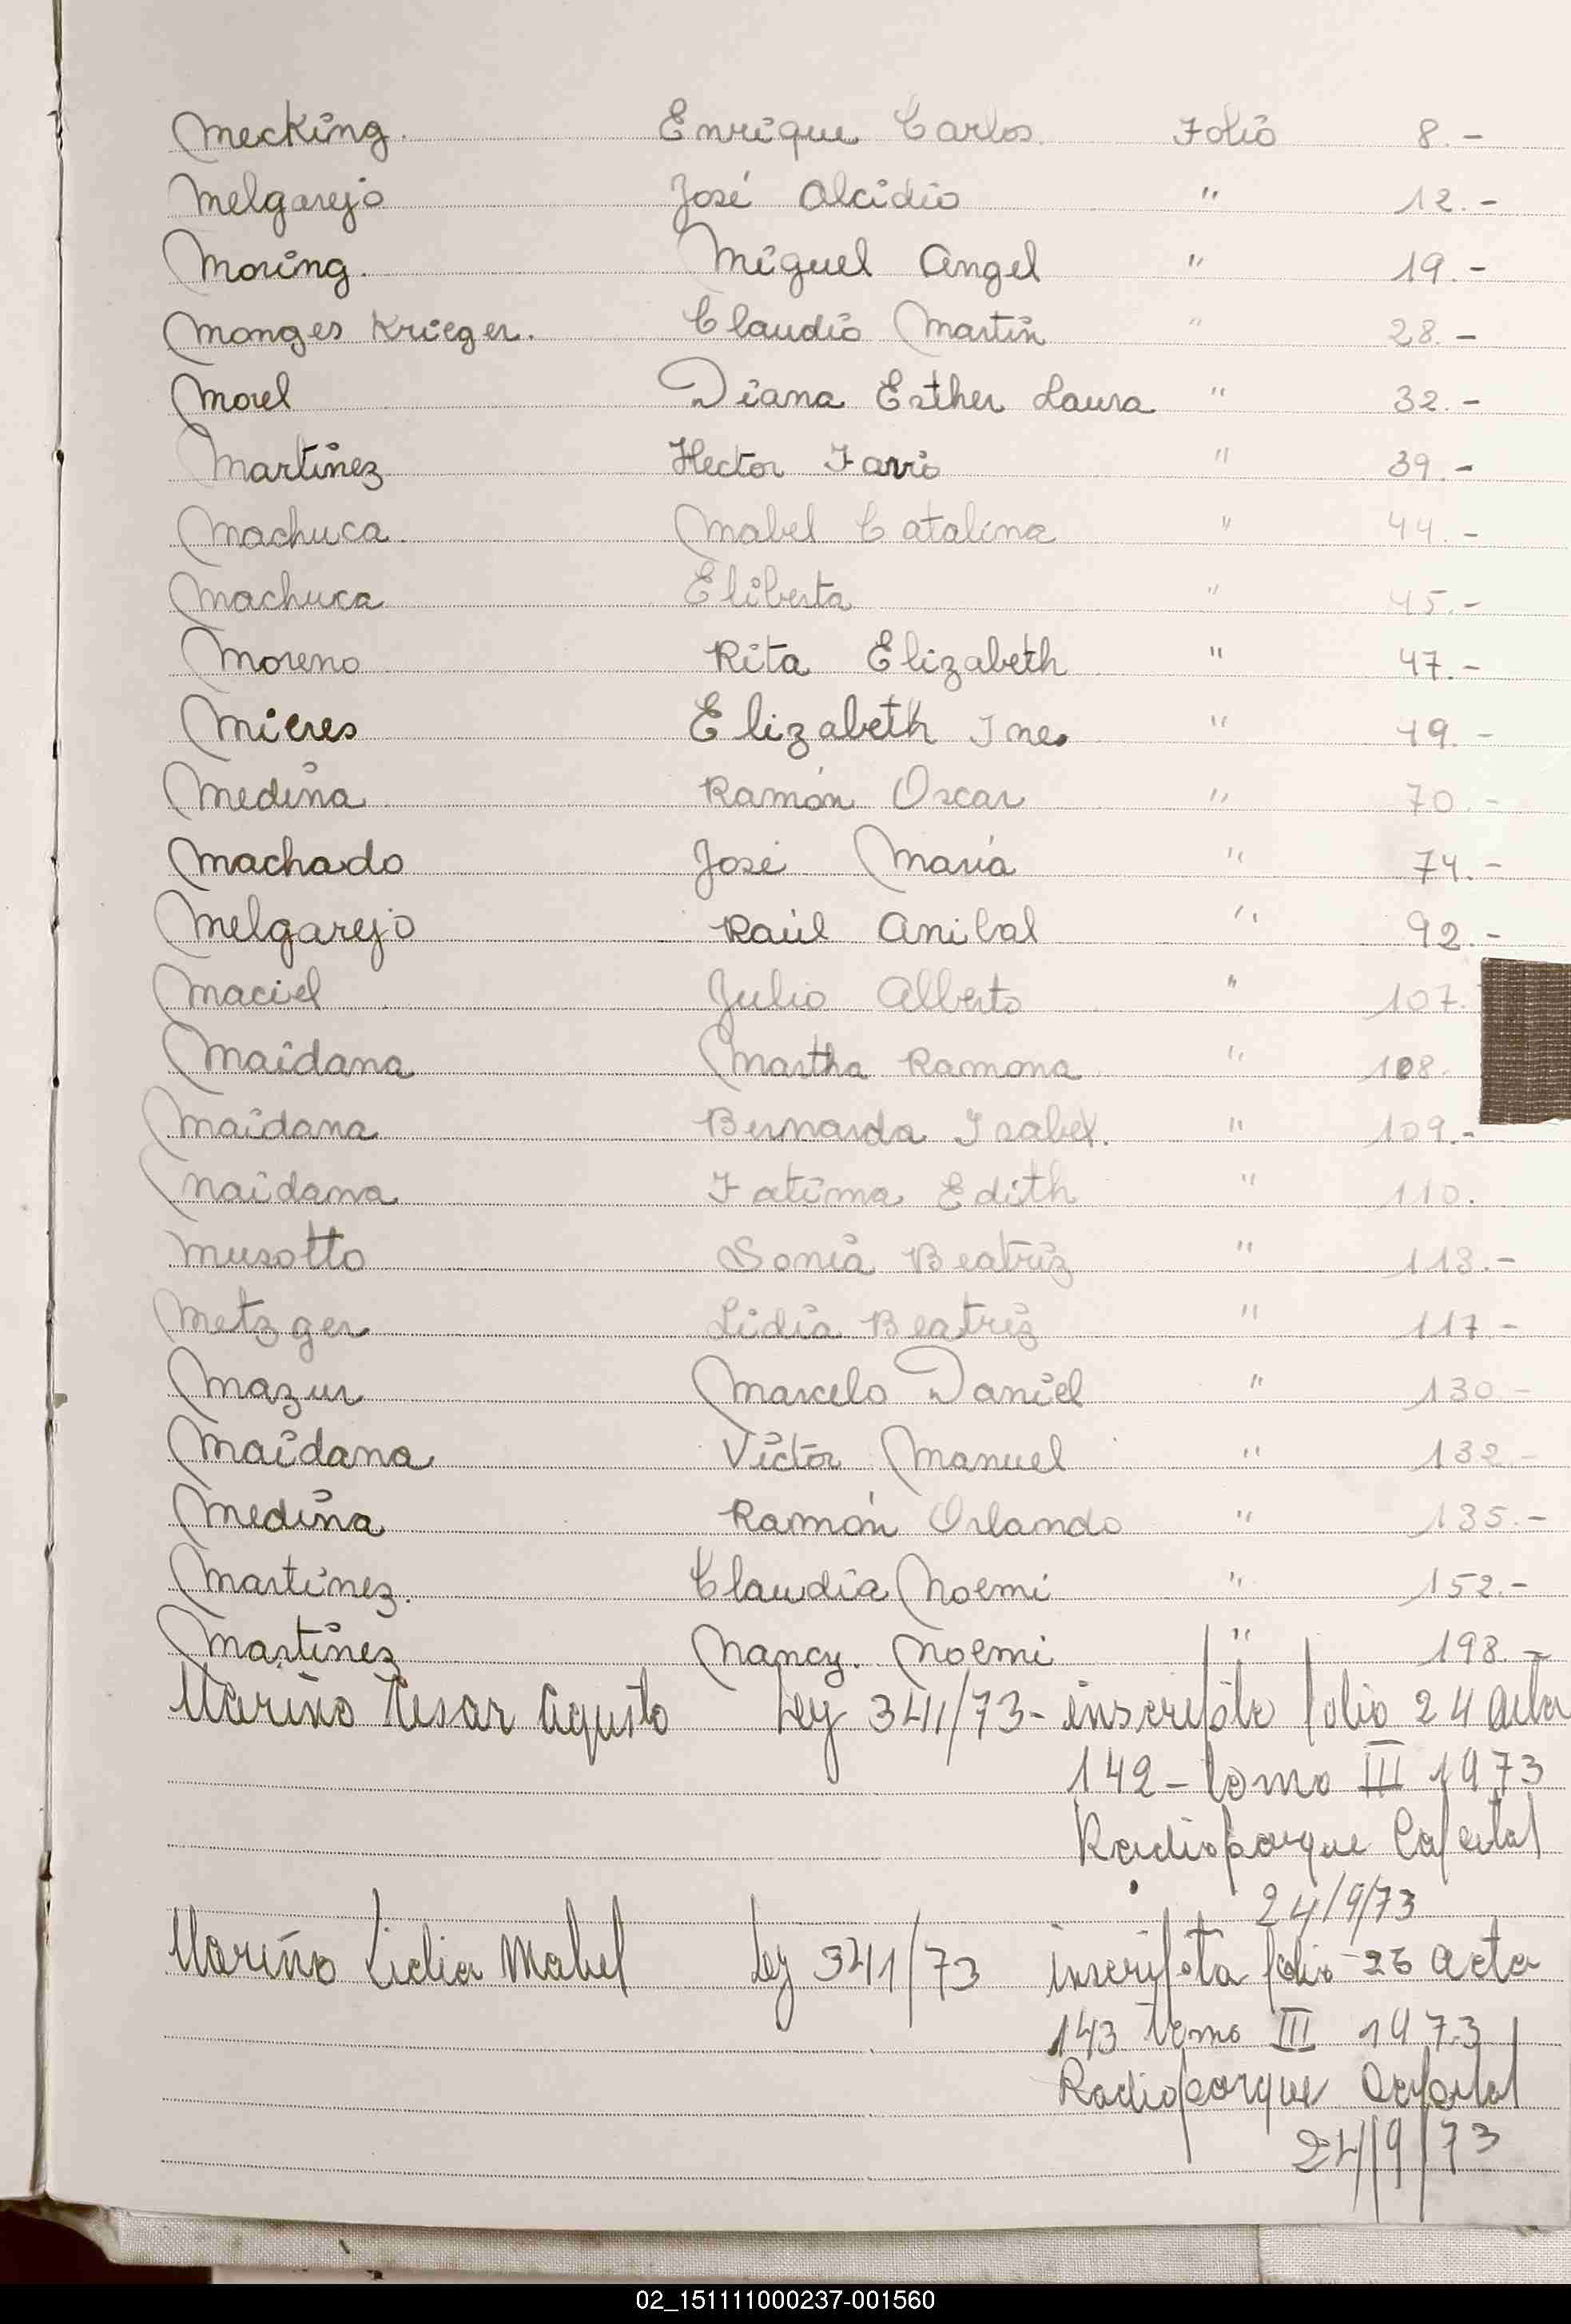 Mecking. Enrique Carlos. Folio 8.-
Melgarejo José Alcidio " 12.-
Moring. Miguel Angel " 19.-
Monges Krieger. Claudio Martin " 28.-
Morel Diana Esther Laura " 32.-
Martinez Hector " 39.-
Machuca. Mabel Catalina " 44.-
Machuca Eliberta " 45.-
Moreno Rita Elizabeth " 47.-
Mieres Elizabeth Ines " 49.-
Medina Ramón Oscar " 70.-
Machado José María " 74.-
Melgarejo Raúl Anibal " 92.-
Maciel Julio Alberto " 107.
Maidana Martha Ramona " 108.
Maidana Bernarda Isabel. " 109.-
Maidana Fatima Edith " 110.
Musotto Sonia Beatriz " 113.-
Metzger Lidia Beatriz " 117.-
Mazur Marcelo Daniel " 130.-
Maidana Victor Manuel " 132.-
Medina Ramón Orlando " 135.-
Martinez. Claudia Noemi " 152.-
Martinez Nancy. Noemi " 198.-
Mariño Cesar Agusto Ley 341/73- inscripto folio 24 acta
142- tomo III 1973
Radioparque Capital
24/9/73
Mariño Lidia Mabel Ley 341/73 inscripta folio acta
143 tomo III 1973
Radioparque Capital
24/9/73
02_151111000237-001560